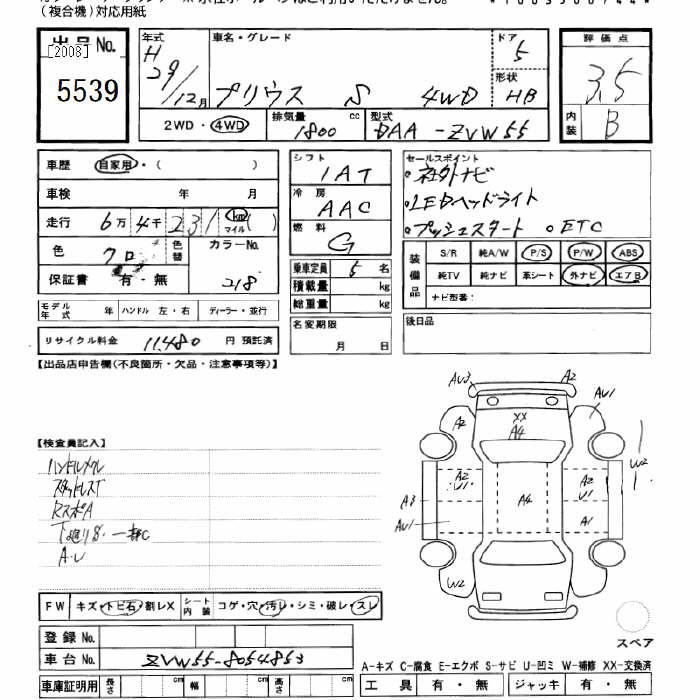 (複合機)対応用紙
出品No.
[2008]
5539
年式
H
29/12月
車名・グレード
プリウス S 4WD
ドア
5
形状
HB
2WD・4WD
排気量
1800 cc
型式
DAA-ZVW55
評価点
3.5
内装
B
車歴 自家用・( )
車検 年 月
走行 6万 4千 231 km マイル ( )
色 クロ 色替 カラーNo.
保証書 有・無 218
モデル年式 年 ハンドル 左・右 ディーラー・並行
リサイクル料金 11,480 円 預託済
シフト
1AT
冷房
AAC
燃料
G
乗車定員 5 名
積載量 kg
総重量 kg
名変期限
月 日
セールスポイント
・社外ナビ
・LEDヘッドライト
・プッシュスタート ・ETC
装備品
S/R 純A/W P/S P/W ABS
純TV 純ナビ 革シート 外ナビ エアB
ナビ型番:
後日品
【出品店申告欄(不良箇所・欠品・注意事項等)】
【検査員記入】
ハンドルメクレ
スタッドレスT
RスポA
下廻りS・一部C
A・U
AU3 A2
A2 XX AU1
A4
W2
A2 U1 A2 U1
A3 A4
AU1 A1
W2
FW キズ・トビ石・割レX シート内装 コゲ・穴・汚レ・シミ・破レ・スレ
登録No.
車台No. ZVW55-8054853
車庫証明用 長さ cm 幅 cm 高さ cm
スペア
A-キズ C-腐食 E-エクボ S-サビ U-凹ミ W-補修 XX-交換済
工具 有・無 ジャッキ 有・無